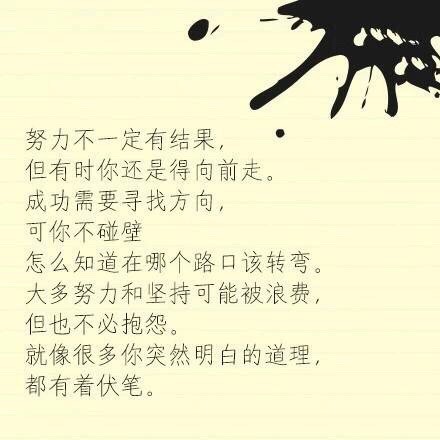 努力不一定有结果，
但有时你还是得向前走。
成功需要寻找方向，
可你不碰壁
怎么知道在哪个路口该转弯。
大多努力和坚持可能被浪费，
但也不必抱怨。
就像很多你突然明白的道理，
都有着伏笔。